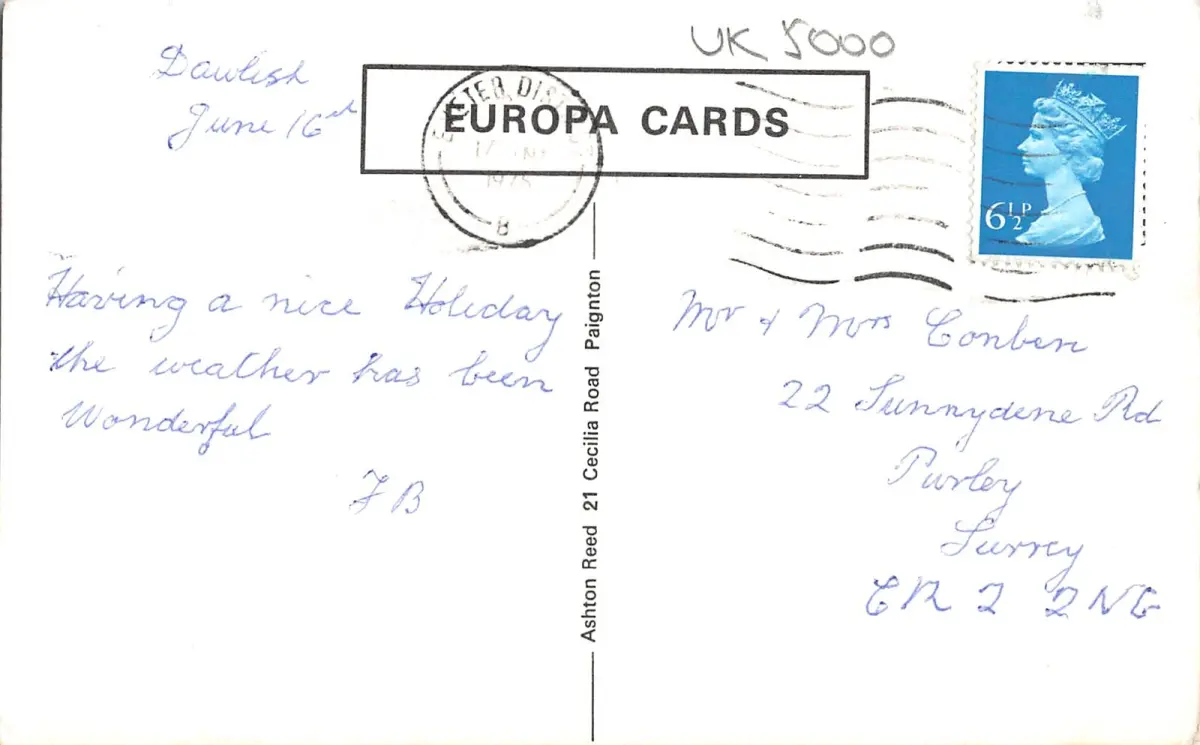 UK 5000
Dawlish
June 16th
EUROPA CARDS
1975
B
6½P
Having a nice Holiday
the weather has been
Wonderful
FB
Ashton Reed 21 Cecilia Road Paignton
Mr & Mrs Conben
22 Sunnydene Rd
Purley
Surrey
CR2 2NG